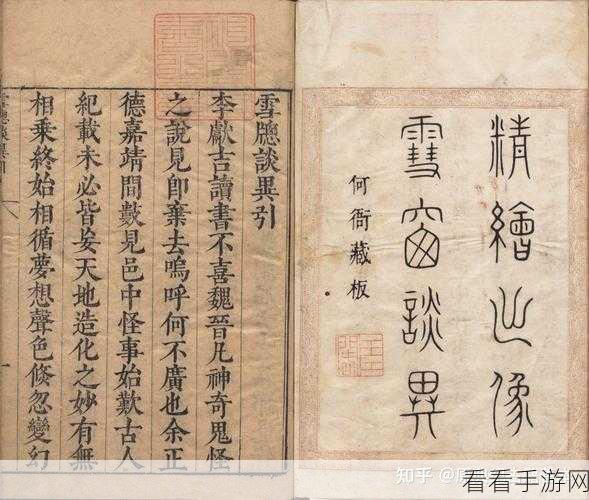 精繪出像
雪窗談異
何衙藏板
雪牕談異引
李獻吉讀書不喜魏晉凡神奇鬼怪
之說見即棄去嗚呼何不廣也余正
德嘉靖間數見邑中怪事始歎古人
紀載未必皆妄天地造化之妙有無
相乘終始相循夢想聲色倏忽變幻
一
知乎
看看手游网